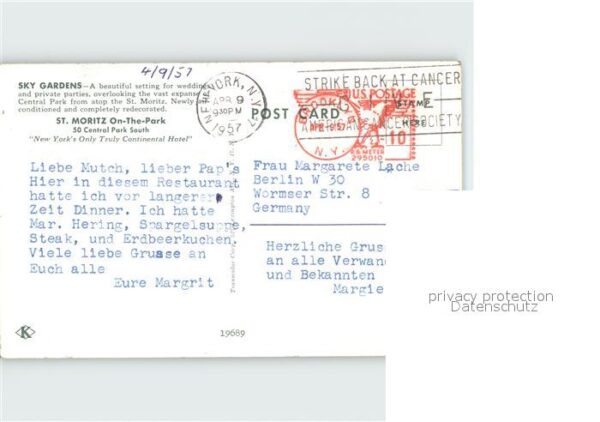 4/9/57
SKY GARDENS—A beautiful setting for wedding
and private parties, overlooking the vast expanse
Central Park from atop the St. Moritz. Newly
conditioned and completely redecorated.
ST. MORITZ On-The-Park
50 Central Park South
"New York's Only Truly Continental Hotel"
NEW YORK, N.Y.
APR 9
930PM
1957
POST CARD
STRIKE BACK AT CANCER
AMERICAN CANCER SOCIETY
U.S. POSTAGE
STAMP
HERE
BROOKLYN
APR-9'57
N.Y.
10
P.B. METER
295010
Liebe Mutch, lieber Pap's
Hier in diesem Restaurant
hatte ich vor langerer
Zeit Dinner. Ich hatte
Mar. Hering, Spargelsuppe,
Steak, und Erdbeerkuchen.
Viele liebe Grusse an
Euch alle
Eure Margrit
Frau Margarete Lache
Berlin W 30
Wormser Str. 8
Germany
Herzliche Grus
an alle Verwan
und Bekannten
Margie
K
19689
privacy protection
Datenschutz